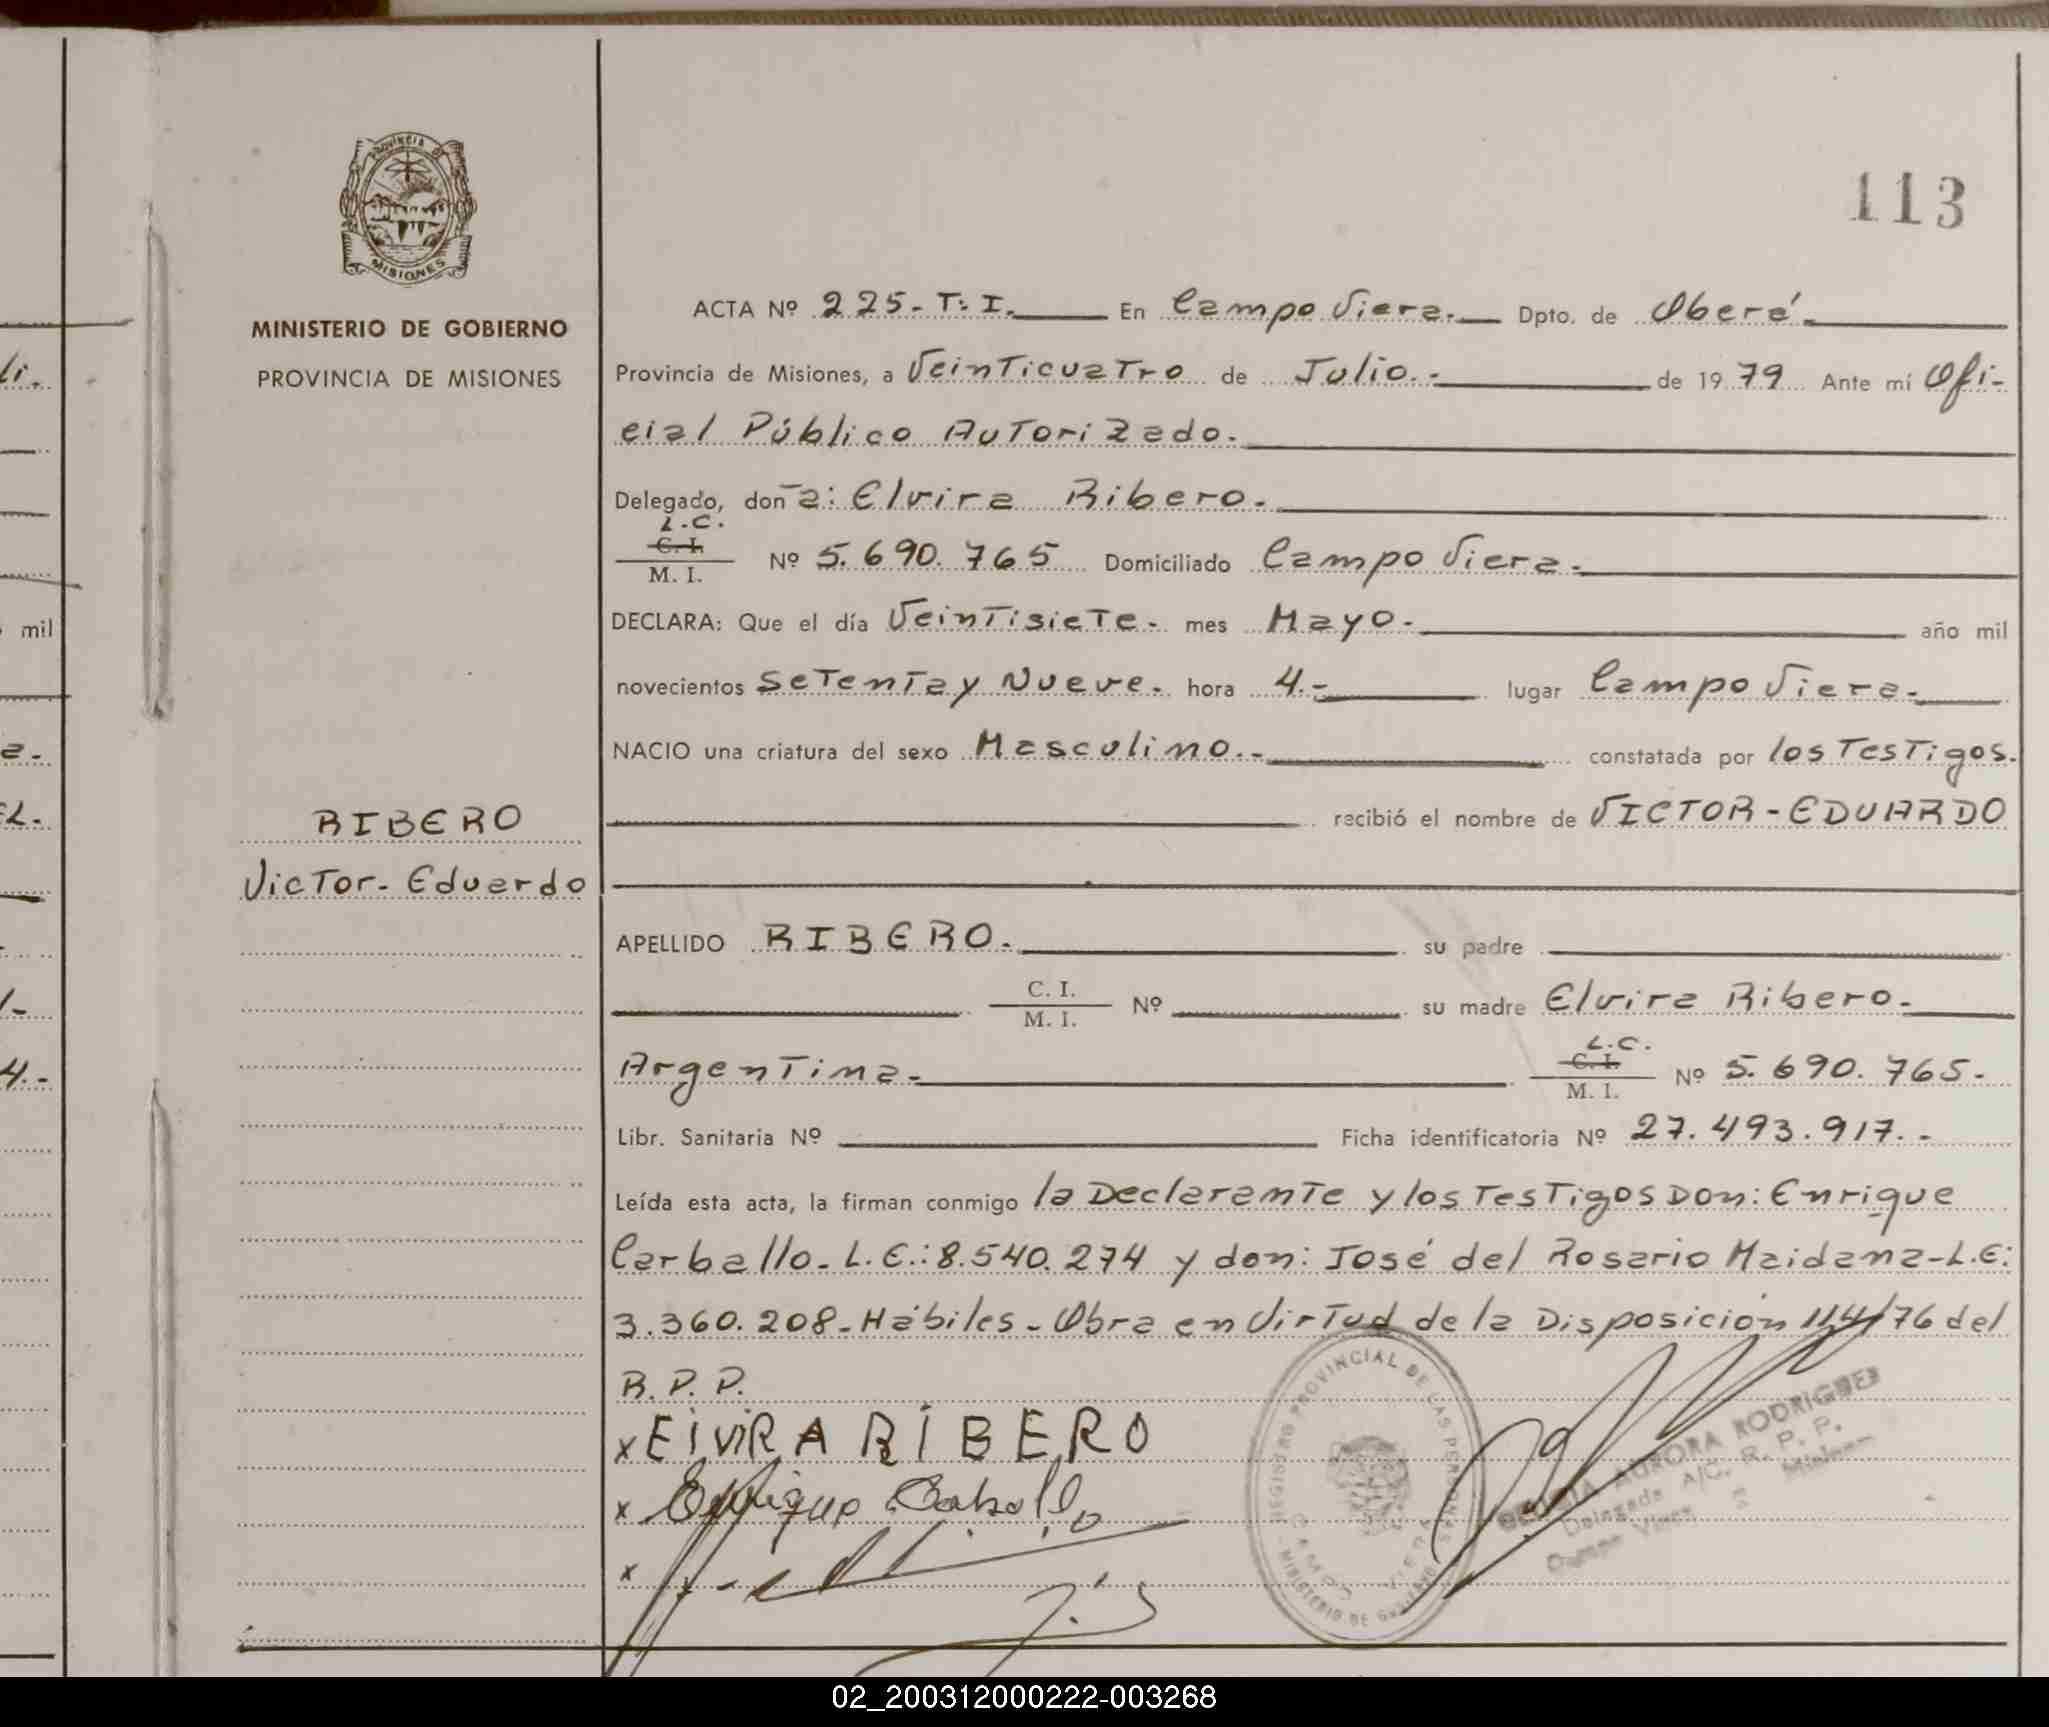 PROVINCIA DE
MISIONES
MINISTERIO DE GOBIERNO
PROVINCIA DE MISIONES
113
ACTA Nº 225-T:I. En Campo Viera. Dpto. de Oberá
Provincia de Misiones, a Veinticuatro de Julio.- de 1979 Ante mí Ofi-
cial Público Autorizado.
Delegado, don-a: Elvira Ribero.
L.C.
C. I.
M. I.
Nº 5.690.765 Domiciliado Campo Viera.
DECLARA: Que el día Veintisiete. mes Mayo. año mil
novecientos Setenta y Nueve. hora 4.- lugar Campo Viera.
NACIO una criatura del sexo Masculino.- constatada por los Testigos.
recibió el nombre de VICTOR-EDUARDO
RIBERO
Victor-Eduardo
APELLIDO RIBERO. su padre
C. I.
M. I.
Nº su madre Elvira Ribero.
Argentina.
L.C.
C. I.
M. I.
Nº 5.690.765.
Libr. Sanitaria Nº Ficha identificatoria Nº 27.493.917.-
Leída esta acta, la firman conmigo la Declarante y los Testigos Don: Enrique
Carballo. L.E.: 8.540.274 y don: José del Rosario Maidana-L.E:
3.360.208-Hábiles-Obra en virtud de la Disposición 114/76 del
R.P.P.
x ElViRA RiBERO
x Enrique Carballo
x
REGISTRO PROVINCIAL DE LAS PERSONAS
MINISTERIO DE GOBIERNO
CAMPO VIERA
AURORA RODRIGUES
Delegada A/C. R. P. P.
Campo Viera Misiones
li.
mil
a.
EL.
4.-
02_200312000222-003268